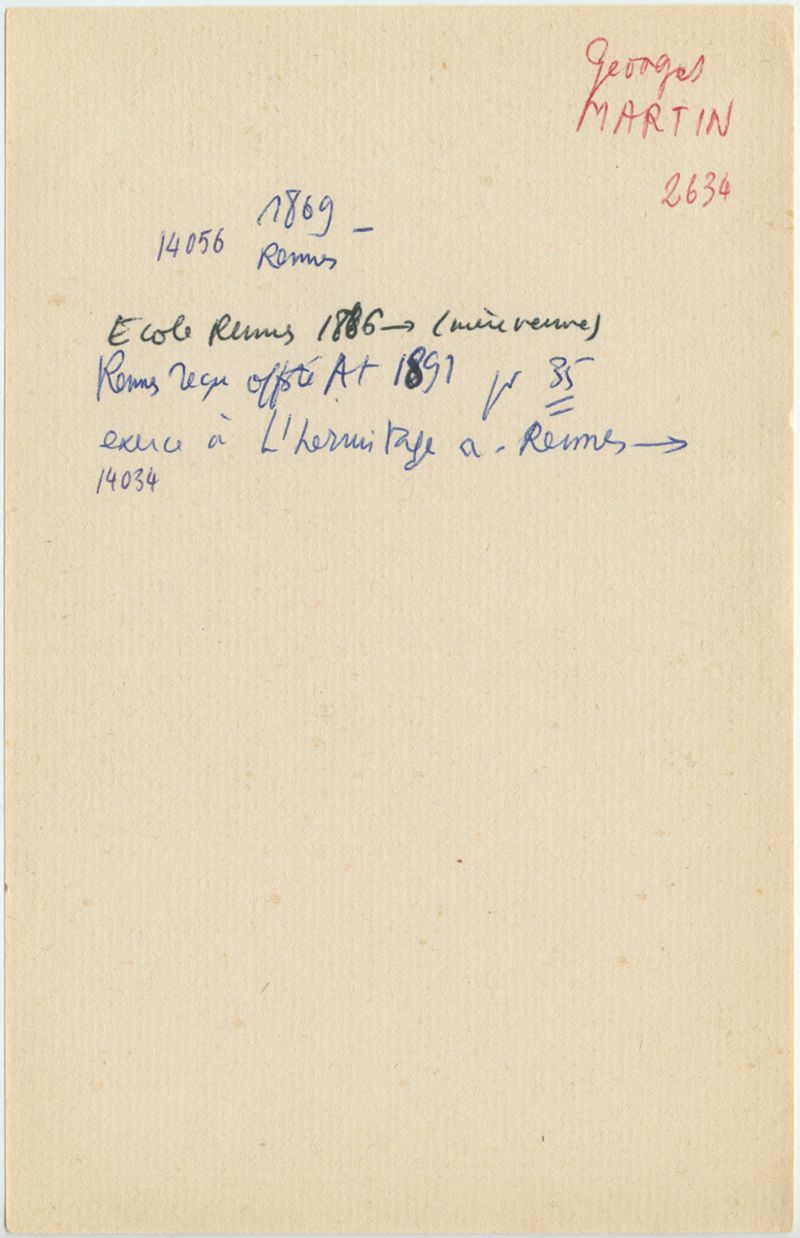 Georges
MARTIN
2634
1869 -
14056 Rennes
Ecole Rennes 1886 → (mère veuve)
Rennes reçu offsté At 1891 pr 35
exerce à L'hermitage a - Rennes →
14034